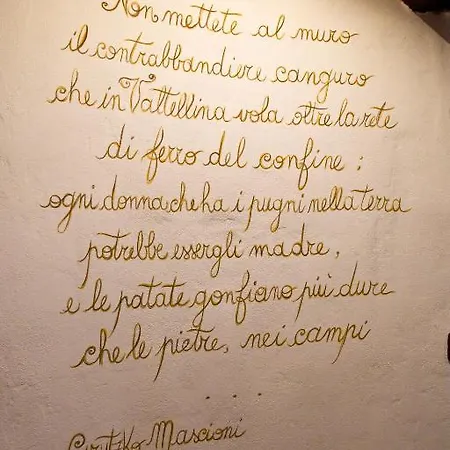 Non mettete al muro
il contrabbandiere canguro
che in Vattellina vola oltre la rete
di ferro del confine:
ogni donna che ha i pugni nella terra
potrebbe essergli madre,
e le patate gonfiano più dure
che le pietre, nei campi
. . .
Mascioni